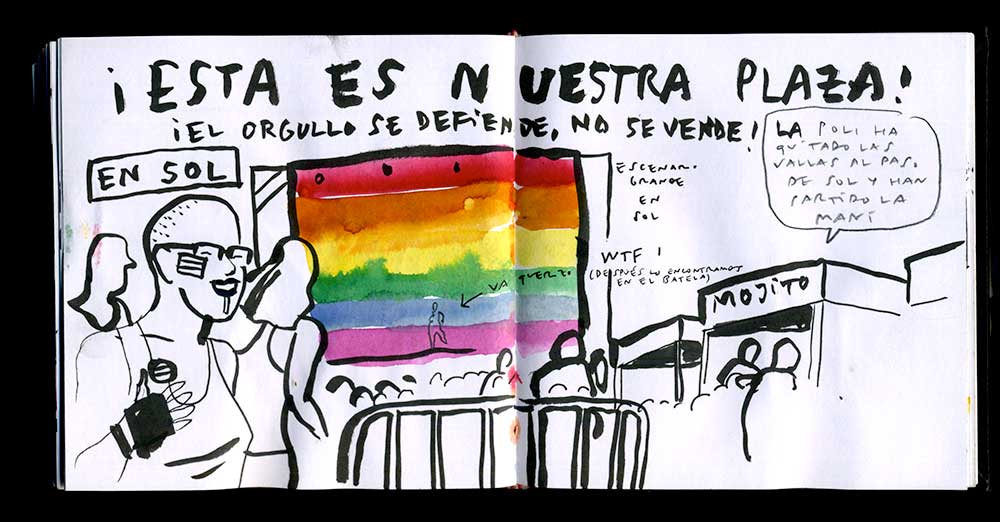 ¡ESTA ES NUESTRA PLAZA!
¡EL ORGULLO SE DEFIENDE, NO SE VENDE!
EN SOL
LA POLI HA
QUITADO LAS
VALLAS AL PAS.
DE SOL Y HAN
PARTIDO LA
MANI
ESCENAR.
GRANDE
EN
SOL
WTF!
(DESPUÉS LO ENCONTRAMOS
EN EL BATELA)
MOJITO